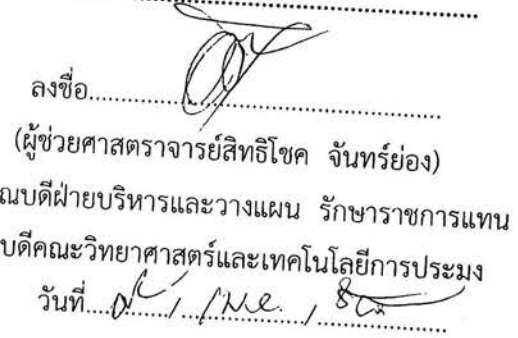 ลงชื่อ......................................................
(ผู้ช่วยศาสตราจารย์สิทธิโชค จันทร์ย่อง)
ณบดีฝ่ายบริหารและวางแผน รักษาราชการแทน
บดีคณะวิทยาศาสตร์และเทคโนโลยีการประมง
วันที่